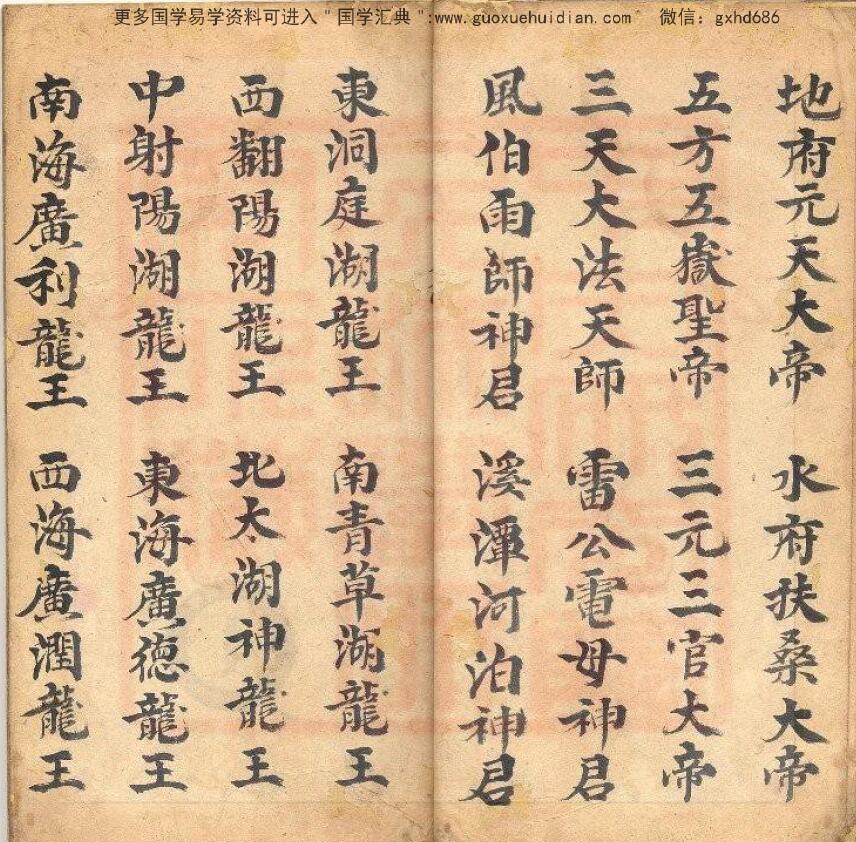 更多国学易学资料可进入"国学汇典":www.guoxuehuidian.com 微信：gxhd686
地府元天大帝 水府扶桑大帝
五方五嶽聖帝 三元三官大帝
三天大法天師 雷公電母神君
風伯雨師神君 溪潭河泊神君
東洞庭湖龍王 南青草湖龍王
西翻陽湖龍王 北太湖神龍王
中射陽湖龍王 東海廣德龍王
南海廣利龍王 西海廣潤龍王